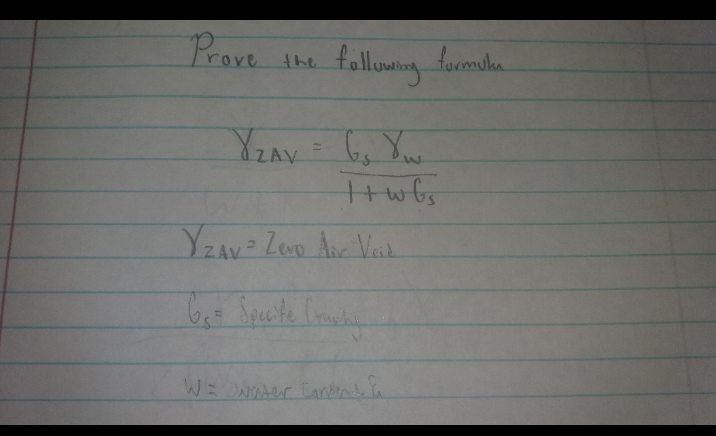 Prove the following formula
γZAV = Gs γw / 1 + w Gs
γZAV = Zero Air Void
Gs = Specific Gravity
w = water content